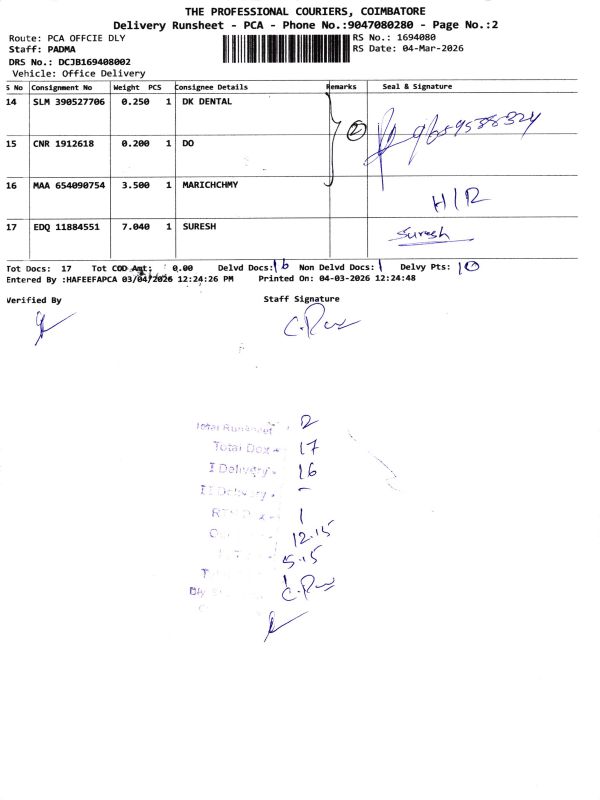 THE PROFESSIONAL COURIERS, COIMBATORE
Delivery Runsheet - PCA - Phone No.:9047080280 - Page No.:2
Route: PCA OFFCIE DLY
RS No.: 1694080
Staff: PADMA
RS Date: 04-Mar-2026
DRS No.: DCJB169408002
Vehicle: Office Delivery
S No Consignment No Weight PCS Consignee Details Remarks Seal & Signature
14 SLM 390527706 0.250 1 DK DENTAL
2 9659588324
15 CNR 1912618 0.200 1 DO
16 MAA 654090754 3.500 1 MARICHCHMY
H/R
17 EDQ 11884551 7.040 1 SURESH Suresh
Tot Docs: 17 Tot COD Amt: 0.00 Delvd Docs: 16 Non Delvd Docs: 1 Delvy Pts: 10
Entered By :HAFEEFAPCA 03/04/2026 12:24:26 PM Printed On: 04-03-2026 12:24:48
Verified By Staff Signature
Total Runsheet 2
Total Dox - 17
I Delivery - 16
II Delivery - -
1
12.15
5.15